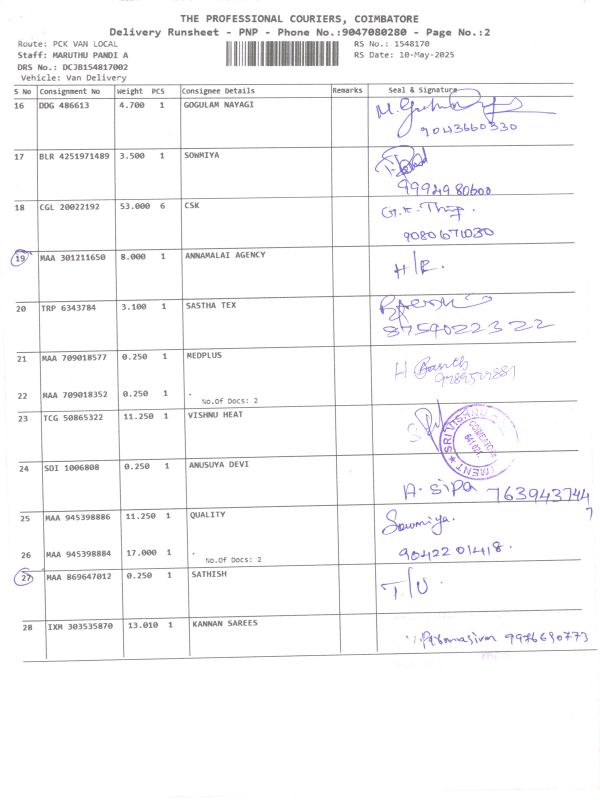 THE PROFESSIONAL COURIERS, COIMBATORE
Delivery Runsheet - PNP - Phone No.:9047080280 - Page No.:2
Route: PCK VAN LOCAL RS No.: 1548170
Staff: MARUTHU PANDI A RS Date: 10-May-2025
DRS No.: DCJB154817002
Vehicle: Van Delivery
S No Consignment No Weight PCS Consignee Details Remarks Seal & Signature
16 DDG 486613 4.700 1 GOGULAM NAYAGI
9043660330
17 BLR 4251971489 3.500 1 SOWMIYA
9994980600
18 CGL 20022192 53.000 6 CSK
9080671030
19 MAA 301211650 8.000 1 ANNAMALAI AGENCY
20 TRP 6343784 3.100 1 SASTHA TEX
8759022322
21 MAA 709018577 0.250 1 MEDPLUS
22 MAA 709018352 0.250 1 .
No.Of Docs: 2
23 TCG 50865322 11.250 1 VISHNU HEAT
24 SDI 1006808 0.250 1 ANUSUYA DEVI
A. Sipa 7639437447
25 MAA 945398886 11.250 1 QUALITY
Sowmiya.
26 MAA 945398884 17.000 1 .
No.Of Docs: 2
9042201418.
27 MAA 869647012 0.250 1 SATHISH
28 IXM 303535870 13.010 1 KANNAN SAREES
9976690773